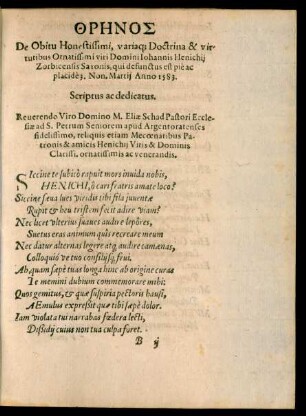 ΘΡΗΝΟΣ
De Obitu Honestissimi, variaq́; Doctrina & vir-
tutibus Ornatissimi viri Domini Iohannis Henichij
Zorbicensis Saxonis, qui defunctus est piè ac
placidè 3. Non. Martij Anno 1583.
Scriptus ac dedicatus.
Reuerendo Viro Domino M. Eliæ Schad Pastori Eccle-
siæ ad S. Petrum Seniorem apud Argentoratenses
fidelissimo, reliquis etiam Mecœnatibus Pa-
tronis & amicis Henichij Vitis & Dominis
Clariss. ornatissimis ac venerandis.
Siccine te subitò rapuit mors inuida nobis,
HENICHI, ô cari fratris amate loco?
Siccine sæua lues viridis tibi fila juuentæ
Rupit & heu tristem fecit adire viam?
Nec licet vlterius suaues audire lepôres,
Suetus eras animum queîs recreare meum
Nec datur alternas legere atq́ audire camœnas,
Colloquio ve tuo consilijsq́ frui.
Ah quàm sæpè tuas longa hinc ab origine curas
Te memini dubium commemorare mihi:
Quos gemitus, & quæ suspiria pectoris hausi,
Aemulus expressit quæ tibi sæpè dolor.
Iam violata tui narrabas fœdera lecti,
Dissidij cuius non tua culpa foret.
B ij